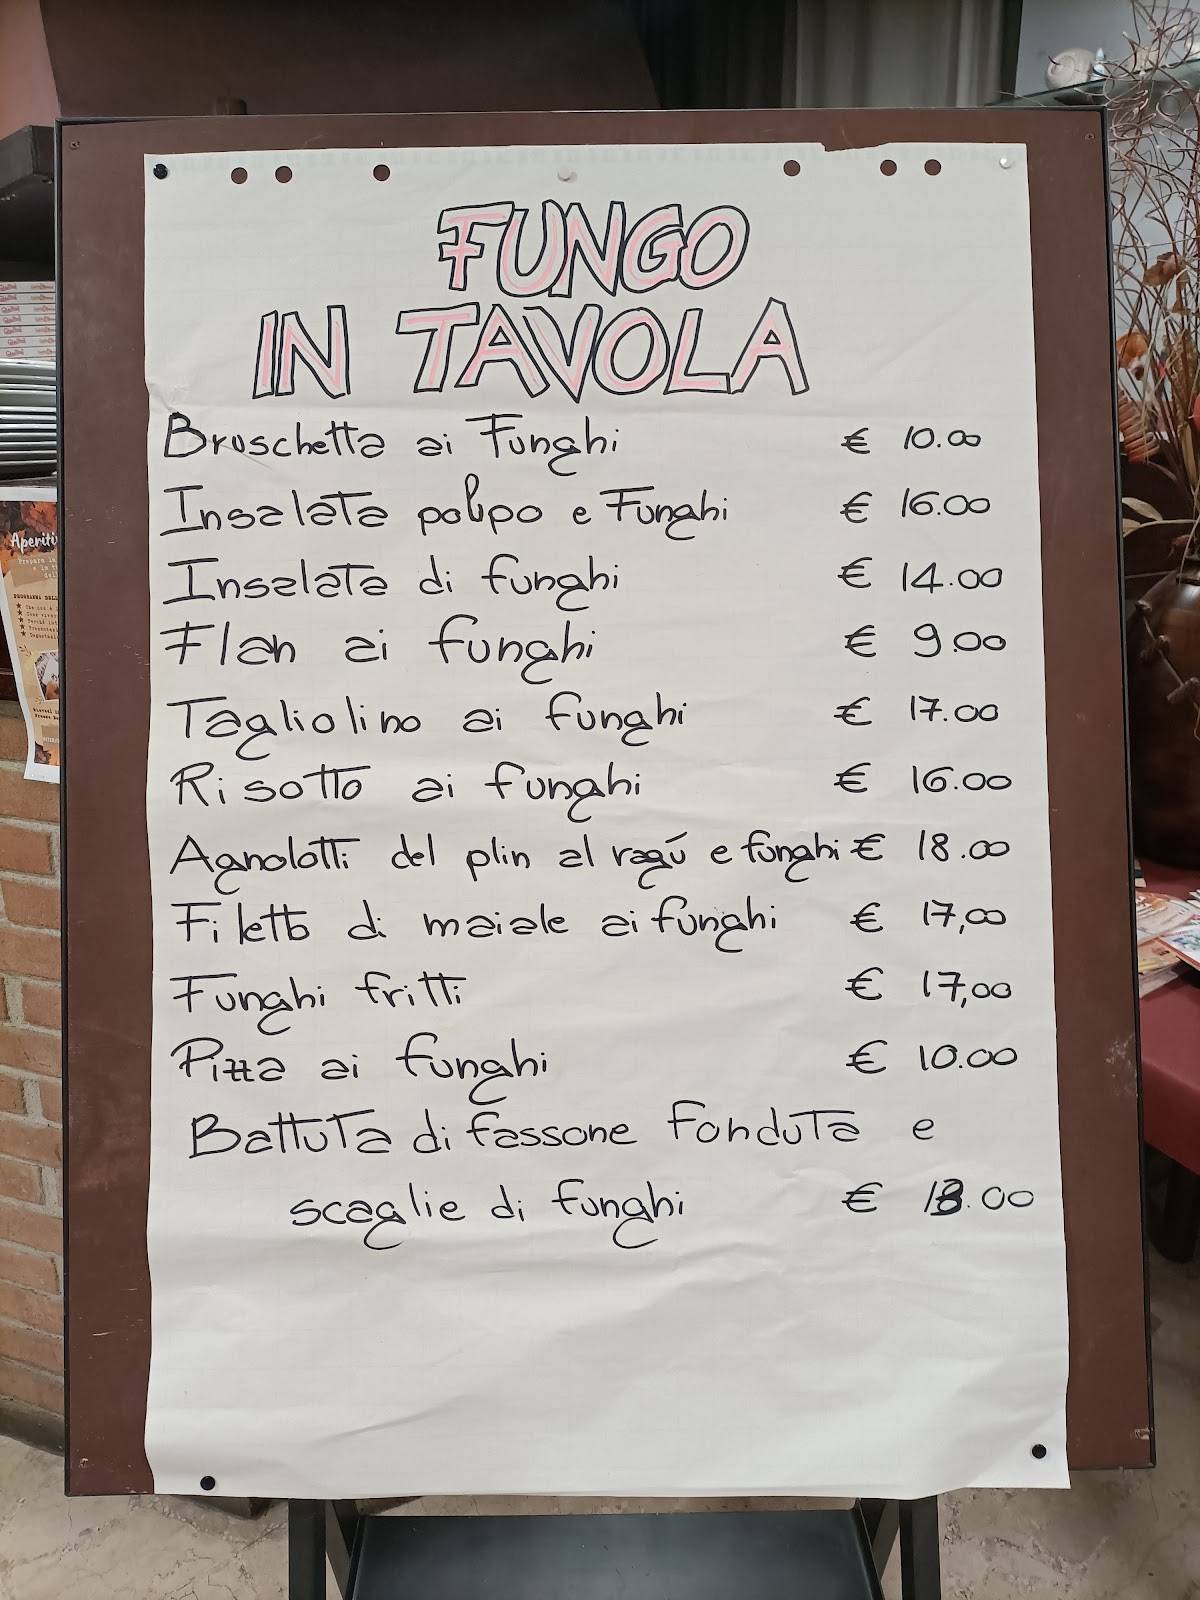 FUNGO
IN TAVOLA
Bruschetta ai Funghi € 10.00
Insalata polipo e Funghi € 16.00
Insalata di funghi € 14.00
Flan ai funghi € 9.00
Tagliolino ai funghi € 17.00
Risotto ai funghi € 16.00
Agnolotti del plin al ragú e funghi € 18.00
Filetto di maiale ai funghi € 17,00
Funghi fritti € 17,00
Pizza ai funghi € 10.00
Battuta di fassone fonduta e
scaglie di funghi € 18.00
Aperiti